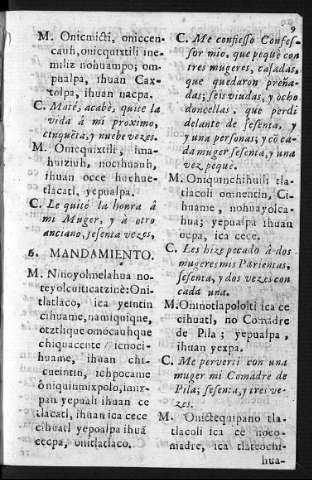 9
M. Onicmicti, oniccen-
cauh, onicquixtili ine-
miliz nohuampo; om-
pualpa, ihuan Cax-
tolpa, ihuan nacpa.
C. Maté, acabè, quite la
vida á mi proximo,
cinquēta, y nuebe vezes.
M. Onicquixtili, ima-
huiziuh, nocihuauh,
ihuan occe huehue-
tlacatl, yepualpa.
C. Le quitò la honra á
mi Muger, y à otro
anciano, sesenta vezes,
6. MANDAMIENTO.
M. Ninoyolmelahua no-
teyolcuiticatzinè: Oni-
tlatlaco, ica yeintin
cihuame, namiquique,
otztlique omocauhque
chiquacente icnoci-
huame, ihuan chi-
cueintin, ichpocame
òniquimixpolo, imix-
pan yepuali ihuan ce
tlacatl, ihuan ica cece
cihuatl yepoalpa ihuā
cecpa, onitlatlaco.
C. Me confiesso Confes-
sor mio, que pequè con
tres mugeres, casadas,
que quedaron preña-
das; seis viudas, y ocho
doncellas, que perdi
delante de sesenta, y
y una personas; y cō ca-
da muger sesenta, y una
vez pequè.
M. Oniquinchihuili tla-
tlacoli omnentin, Ci-
huame, nohuayolca-
hua; yepualpa ihuan
ocpa, ica cece.
C. Les hize pecado à dos
mugeres mis Parientas,
sesenta, y dos vezes con
cada una.
M. Oninotlapololti ica ce
cihuatl, no Comadre
de Pila; yepualpa,
ihuan yexpa.
C. Me perverti con una
muger mi Comadre de
Pila; sesenta, y tres ve-
zes.
M. Onictequipano tla-
tlacoli ica ce noco-
madre, ica tlateochi-
hua-